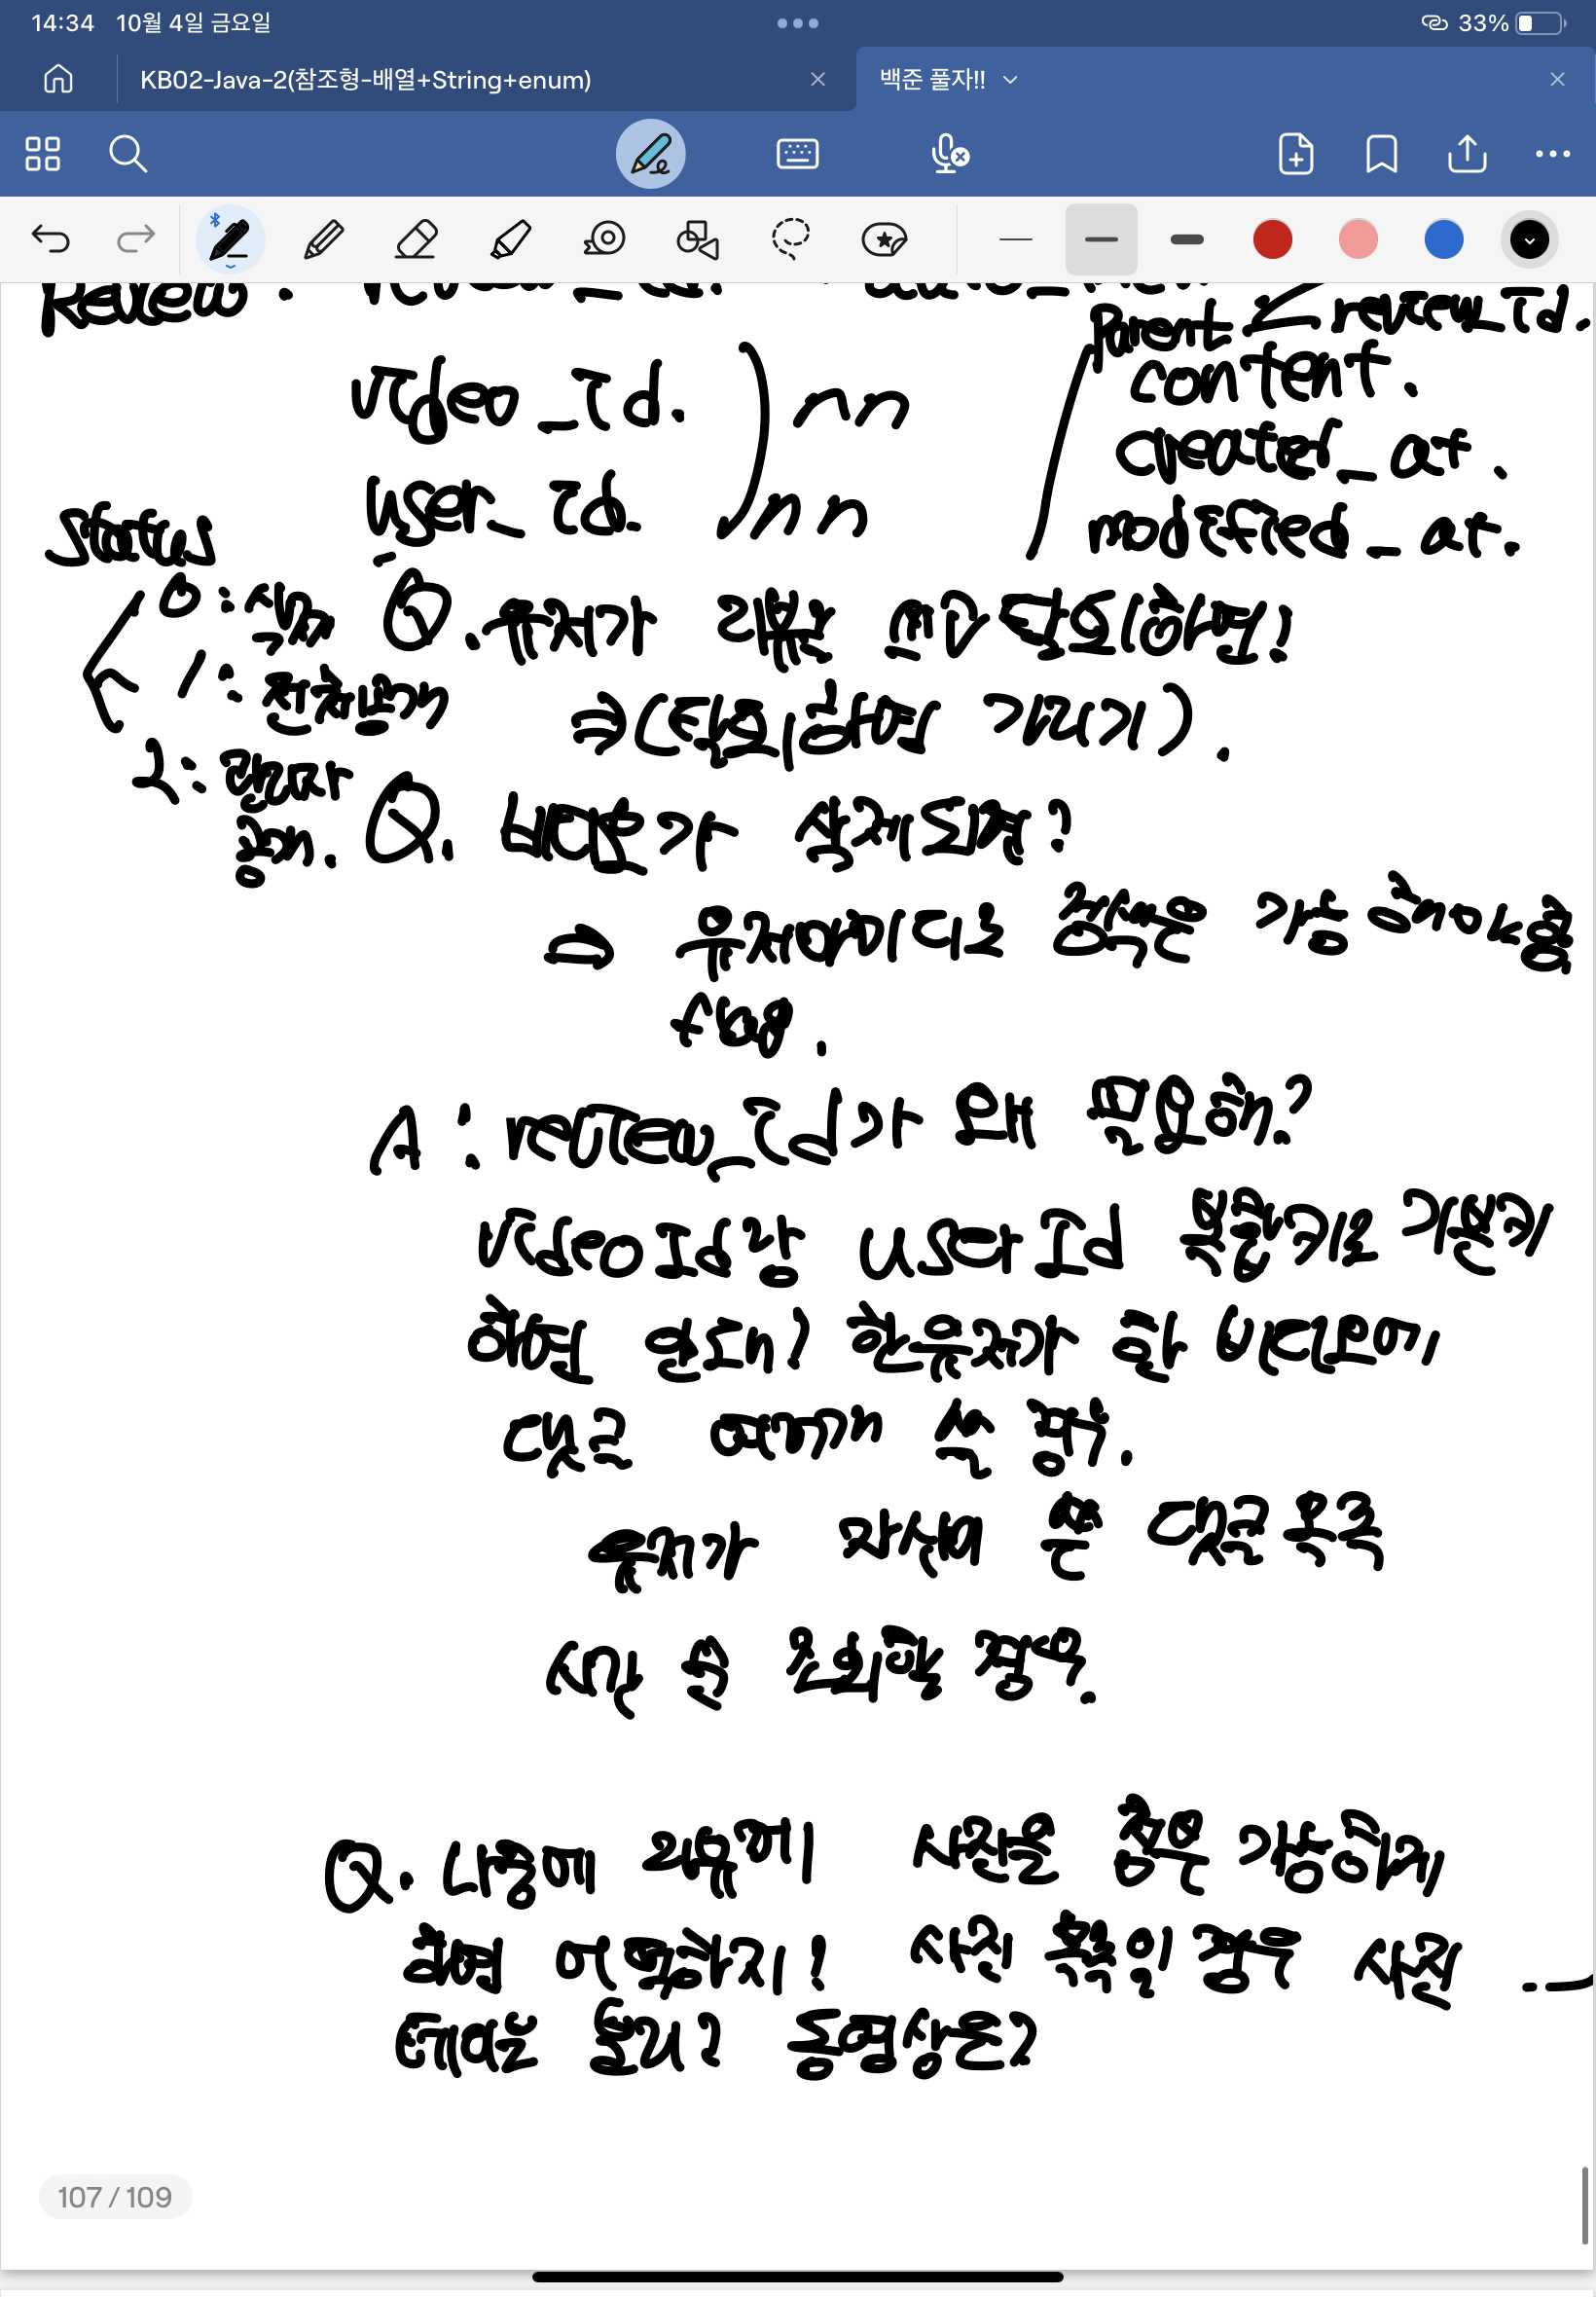 14:34 10월 4일 금요일
33%
KB02-Java-2(참조형-배열+String+enum)
백준 풀자!!
Review :
Parent review_id.
video_id. nn content.
created_at.
user_id. nn modified_at.
Status
0 : Q. 유저가 리뷰 쓰고 탈퇴하면?
1 : 전체공개
⇒ (탈퇴하면 가리기).
2 :
공개. Q. 비디오가 삭제되면?
⇒ 유저아이디로 검색은 가능
flag.
A : review_id가 왜 필요해?
video Id랑 user Id 복합키로 기본키
하면 안돼? 한유저가 한 비디오에
댓글 여러개 쓸 경우.
유저가 자신이 쓴 댓글목록
시간 순 조회할 경우.
Q. 나중에 리뷰에 사진을 첨부 가능하게
하면 어떡하지? 사진 목록일 경우 사진
테이블 분리? 동영상은?
107 / 109